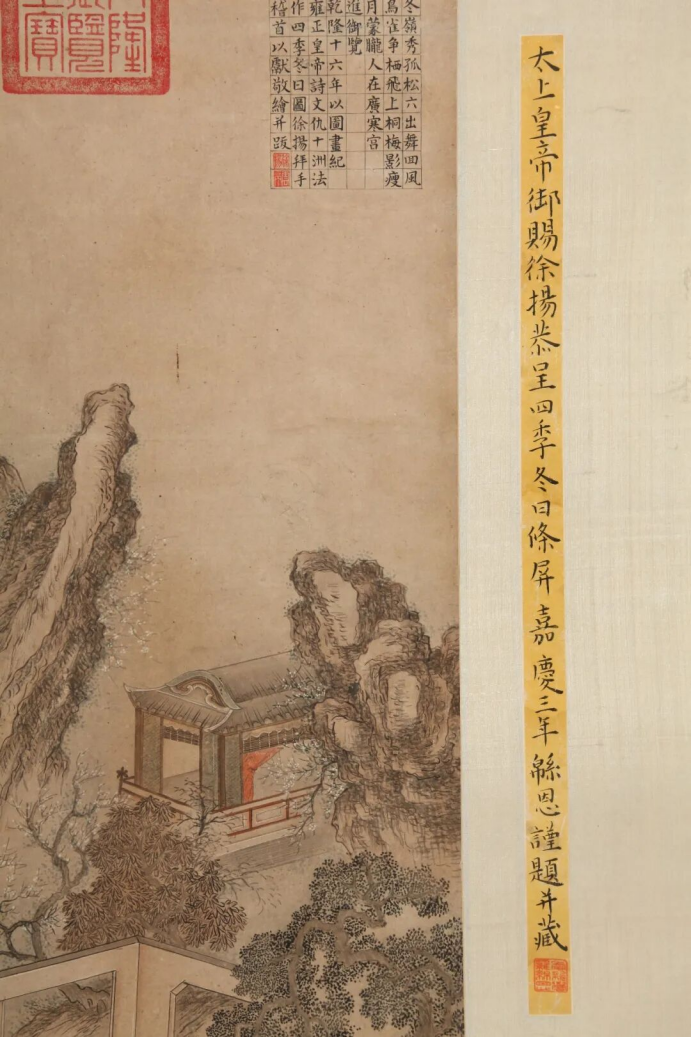 太上皇帝御賜徐揚恭呈四季冬日條屏 嘉慶三年 緜恩謹題并藏
冬嶺秀孤松六出舞回風
鳥雀争栖飛上桐梅影瘦
月蒙朧人在廣寒宮
進御覽
乾隆十六年以圖畫紀
雍正皇帝詩文仇十洲法
作四季冬日圖徐揚拜手
稽首以獻敬繪并跋
隆
御覽
寶